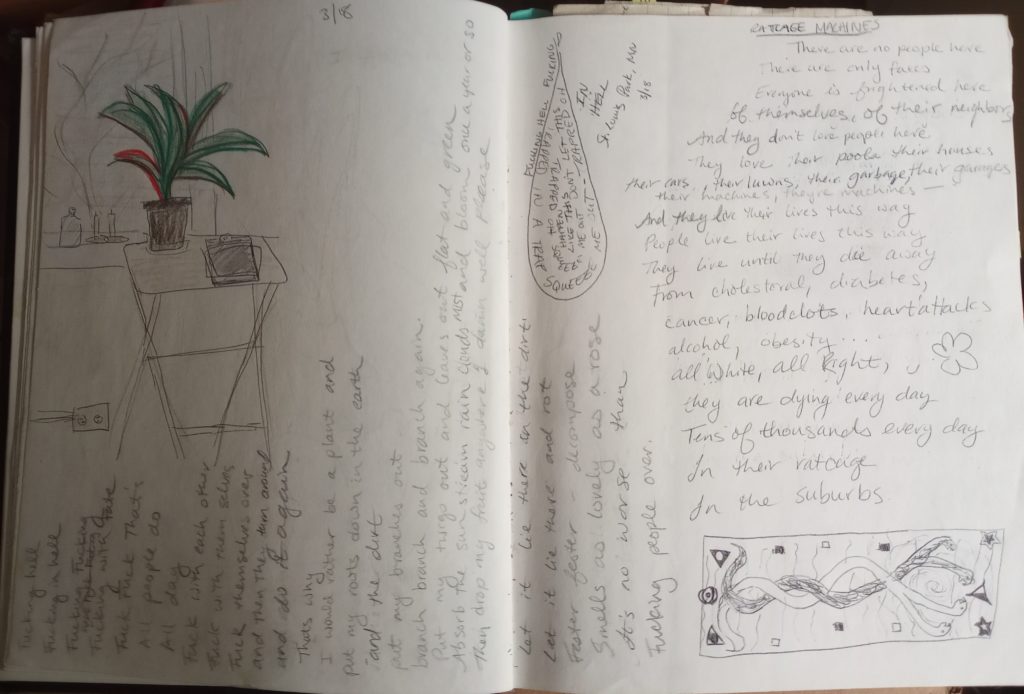 Fucking hell
Fucking hell
Fucking Fucking
Fucking with Fate
Fuck Fuck That's
All people do
All day
Fuck with each other
Fuck with them selves
Fuck themselves over
and then they turn around
and do it again
Thats why
I would rather be a plant and
put my roots down in the earth
and the dirt
put my branches out
branch branch and branch again.
Put my twigs out and leaves out flat and green
Absorb the sun stream rain clouds MIST and bloom once a year or so
Then drop my fruit anywhere I damn well please
Let it lie there in the dirt
Let it lie there and rot
Faster faster - decompose
Smells as lovely as a rose
It's no worse than
Fucking people over.
FUCKING HELL FUCKING
TRAPPED IN A TRAP
DONT LET THIS
TRAPPED OH
SQUEEZE ME OUT
IN
HELL
St. Louis Park, MN
3/18
RATCAGE MACHINES
There are no people here
There are only faces
Everyone is frightened here
Of themselves, of their neighbors
And they don't love people here
They love their pools their houses
their cars, their lawns, their garbage, their garages
their machines, theyre machines —
And they live their lives this way
People live their lives this way
They live until they die away
From cholesteral, diabetes,
cancer, bloodclots, heart attacks
alcohol, obesity....
all White, all Right,
they are dying every day
Tens of thousands every day
In their ratcage
In the suburbs.